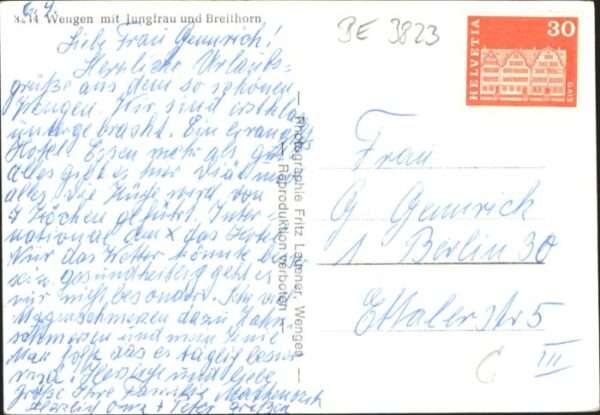 8214 Wengen mit Jungfrau und Breithorn
BE 3823
HELVETIA
30
GAIS
Liebe Frau Gemmrich!
Herrliche Urlaubs-
grüße aus dem so schönen
Wengen. Wir sind erstklassig
untergebracht. Ein
Hotel. Essen mehr als gut
alles gibt es hier Diät
alles. Die Küche wird von
7 Köchen geführt. Inter-
national das Hotel.
Nur das Wetter könnte besser
sein, gesundheitlich geht es
mir nicht besonders.
Magenschmerzen dazu Zahn-
schmerzen und mein Knie
Man hofft das es täglich besser
wird. Herzliche und liebe
Grüße Ihre Familie
Herzlich Oma + Peter Grüßen
Photographie Fritz Lauener, Wengen
Reproduktion verboten
Frau
G. Gemmrich
1 Berlin 30
Ettalerstr 5
III